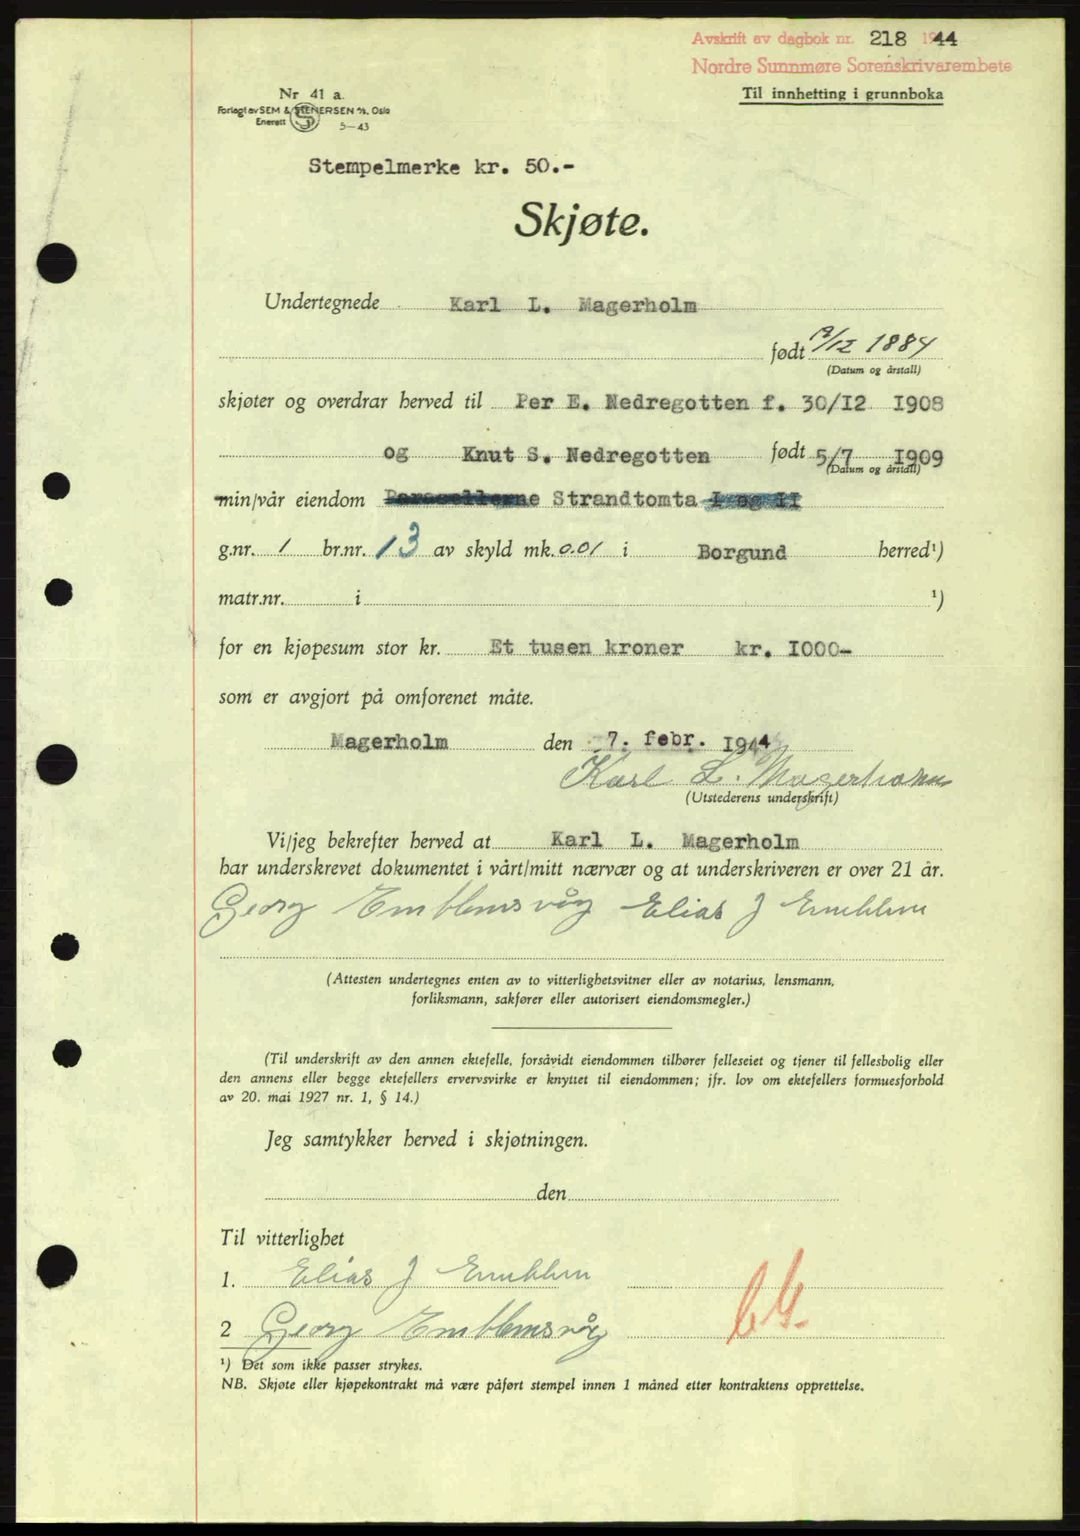 Avskrift av dagbok nr. 218 1944
Nordre Sunnmøre Sorenskrivarembete
Til innhefting i grunnboka
Nr 41 a.
Forlagt av SEM & STENERSEN A/S, Oslo
Enerett 5—43
Stempelmerke kr. 50.-
Skjøte.
Undertegnede Karl L. Magerholm
født /12 1884
(Datum og årstall)
skjøter og overdrar herved til Per E. Nedregotten f. 30/12 1908
og Knut S. Nedregotten født 5/7 1909
(Datum og årstall)
min/vår eiendom Parsellerne Strandtomta I og II
g.nr. 1 br.nr. 13 av skyld mk. 0.01 i Borgund herred¹)
matr.nr. i ¹)
for en kjøpesum stor kr. Et tusen kroner kr. 1000-
som er avgjort på omforenet måte.
Magerholm den 7. febr. 1944
Karl L. Magerholm
(Utstederens underskrift)
Vi/jeg bekrefter herved at Karl L. Magerholm
har underskrevet dokumentet i vårt/mitt nærvær og at underskriveren er over 21 år.
Georg Emblemsvåg Elias J Emblem
(Attesten undertegnes enten av to vitterlighetsvitner eller av notarius, lensmann,
forliksmann, sakfører eller autorisert eiendomsmegler.)
(Til underskrift av den annen ektefelle, forsåvidt eiendommen tilhører felleseiet og tjener til fellesbolig eller
den annens eller begge ektefellers ervervsvirke er knyttet til eiendommen; jfr. lov om ektefellers formuesforhold
av 20. mai 1927 nr. 1, § 14.)
Jeg samtykker herved i skjøtningen.
den
Til vitterlighet
1. Elias J Emblem
2 Georg Emblemsvåg
¹) Det som ikke passer strykes.
NB. Skjøte eller kjøpekontrakt må være påført stempel innen 1 måned etter kontraktens opprettelse.